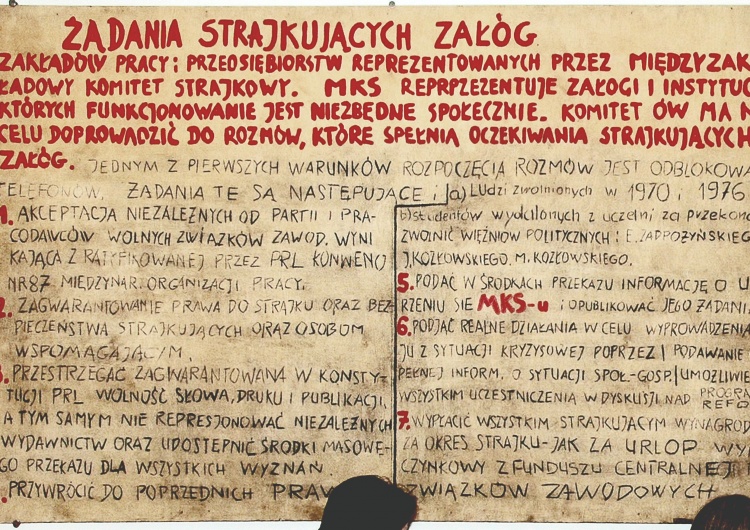 ŻĄDANIA STRAJKUJĄCYCH ZAŁÓG
ZAKŁADÓW PRACY i PRZEDSIĘBIORSTW REPREZENTOWANYCH PRZEZ MIĘDZYZAK
ŁADOWY KOMITET STRAJKOWY. MKS REPRPZEZENTUJE ZAŁOGI I INSTYTUC
KTÓRYCH FUNKCJONOWANIE JEST NIEZBĘDNE SPOŁECZNIE. KOMITET ÓW MA N
CELU DOPROWADZIĆ DO ROZMÓW, KTÓRE SPEŁNIĄ OCZEKIWANIA STRAJKUJĄCYCH
ZAŁÓG. JEDNYM Z PIERWSZYCH WARUNKÓW ROZPOCZĘCIA ROZMÓW JEST ODBLOKOWA
TELEFONÓW. ŻĄDANIA TE SĄ NASTĘPUJĄCE:
1. AKCEPTACJA NIEZALEŻNYCH OD PARTII I PRA-
CODAWCÓW WOLNYCH ZWIĄZKÓW ZAWOD. WYNI
KAJĄCA Z RATYFIKOWANEJ PRZEZ PRL KONWENCJ
NR87 MIĘDZYNAR. ORGANIZACJI PRACY.
2. ZAGWARANTOWANIE PRAWA DO STRAJKU ORAZ BEZ-
PIECZEŃSTWA STRAJKUJĄCYCH ORAZ OSOBOM
WSPOMAGAJĄCYM.
3. PRZESTRZEGAĆ ZAGWARANTOWANĄ W KONSTY-
TUCJI PRL WOLNOŚĆ SŁOWA, DRUKU I PUBLIKACJI,
A TYM SAMYM NIE REPRESJONOWAĆ NIEZALEŻNYCH
WYDAWNICTW ORAZ UDOSTĘPNIĆ ŚRODKI MASOWE-
GO PRZEKAZU DLA WSZYSTKICH WYZNAŃ.
. PRZYWRÓCIĆ DO POPRZEDNICH PRAW
a) Ludzi zwolnionych w 1970 i 1976
b) studentów wydalonych z uczelni za przekona
ZWOLNIĆ WIĘŹNIÓW POLITYCZNYCH: E. ZADROŻYŃSKIEG
J. KOZŁOWSKIEGO, M. KOZŁOWSKIEGO.
5. PODAĆ W ŚRODKACH PRZEKAZU INFORMACJĘ O U
RZENIU SIĘ MKS-u i OPUBLIKOWAĆ JEGO ŻĄDANI
6. PODJĄĆ REALNE DZIAŁANIA W CELU WYPROWADZENIA
JU Z SYTUACJI KRYZYSOWEJ POPRZEZ: PODAWANIE
PEŁNEJ INFORM. O SYTUACJI SPOŁ-GOSP. UMOŻLIWIE
WSZYSTKIM UCZESTNICZENIA W DYSKUSJI NAD PROGR
REFO
7. WYPŁACIĆ WSZYSTKIM STRAJKUJĄCYM WYNAGROD
ZA OKRES STRAJKU-JAK ZA URLOP WY
CZYNKOWY Z FUNDUSZU CENTRALNEJ
ZWIĄZKÓW ZAWODOWYCH